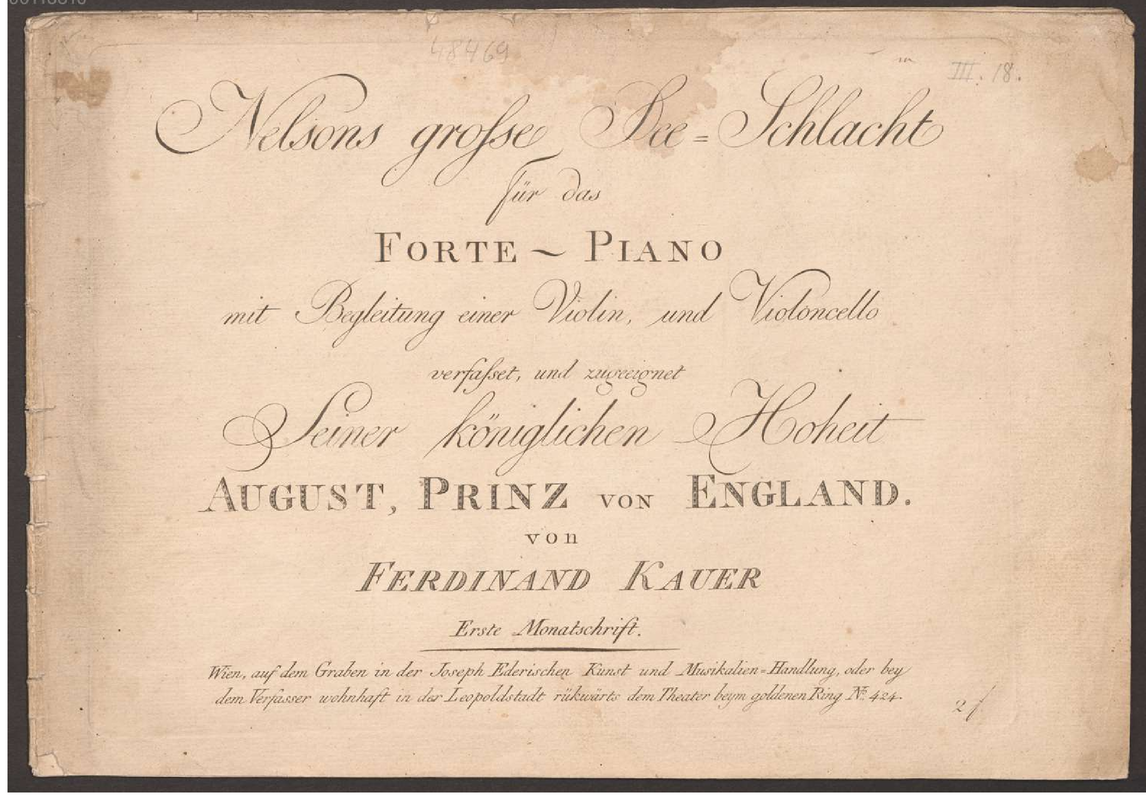 48469
III. 18.
Nelsons grosse See=Schlacht
für das
FORTE ~ PIANO
mit Begleitung einer Violin, und Violoncello
verfasset, und zugeeignet
Seiner königlichen Hoheit
AUGUST, PRINZ VON ENGLAND.
von
FERDINAND KAUER
Erste Monatschrift.
Wien, auf dem Graben in der Joseph Ederischen Kunst und Musikalien=Handlung, oder bey
dem Verfasser wohnhaft in der Leopoldstadt rükwärts dem Theater beym goldenen Ring No. 424.
2f